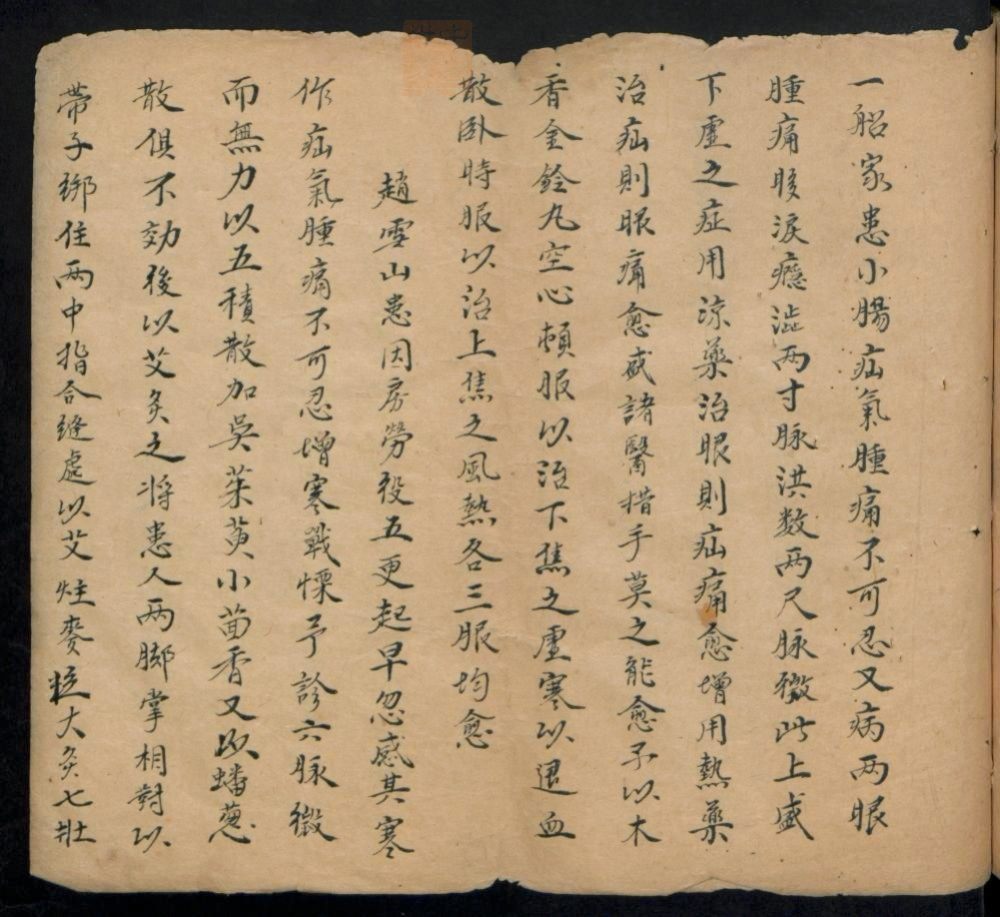 一船家患小腸疝氣腫痛不可忍又病两眼
腫痛眵淚癮澁两寸脉洪数两尺脉微此上盛
下虛之症用涼藥治眼則疝痛愈增用熱藥
治疝則眼痛愈盛諸醫措手莫之能愈予以木
香金鈴丸空心頓服以治下焦之虛寒以退血
散卧時服以治上焦之風熱各三服均愈
趙雪山患因房勞役五更起早忽感其寒
作疝氣腫痛不可忍增寒戰慄予診六脉微
而無力以五積散加吳茱萸小茴香又以蟠蔥
散俱不効後以艾灸之将患人两脚掌相對以
帶子綁住两中指合縫處以艾炷麥粒大灸七壯